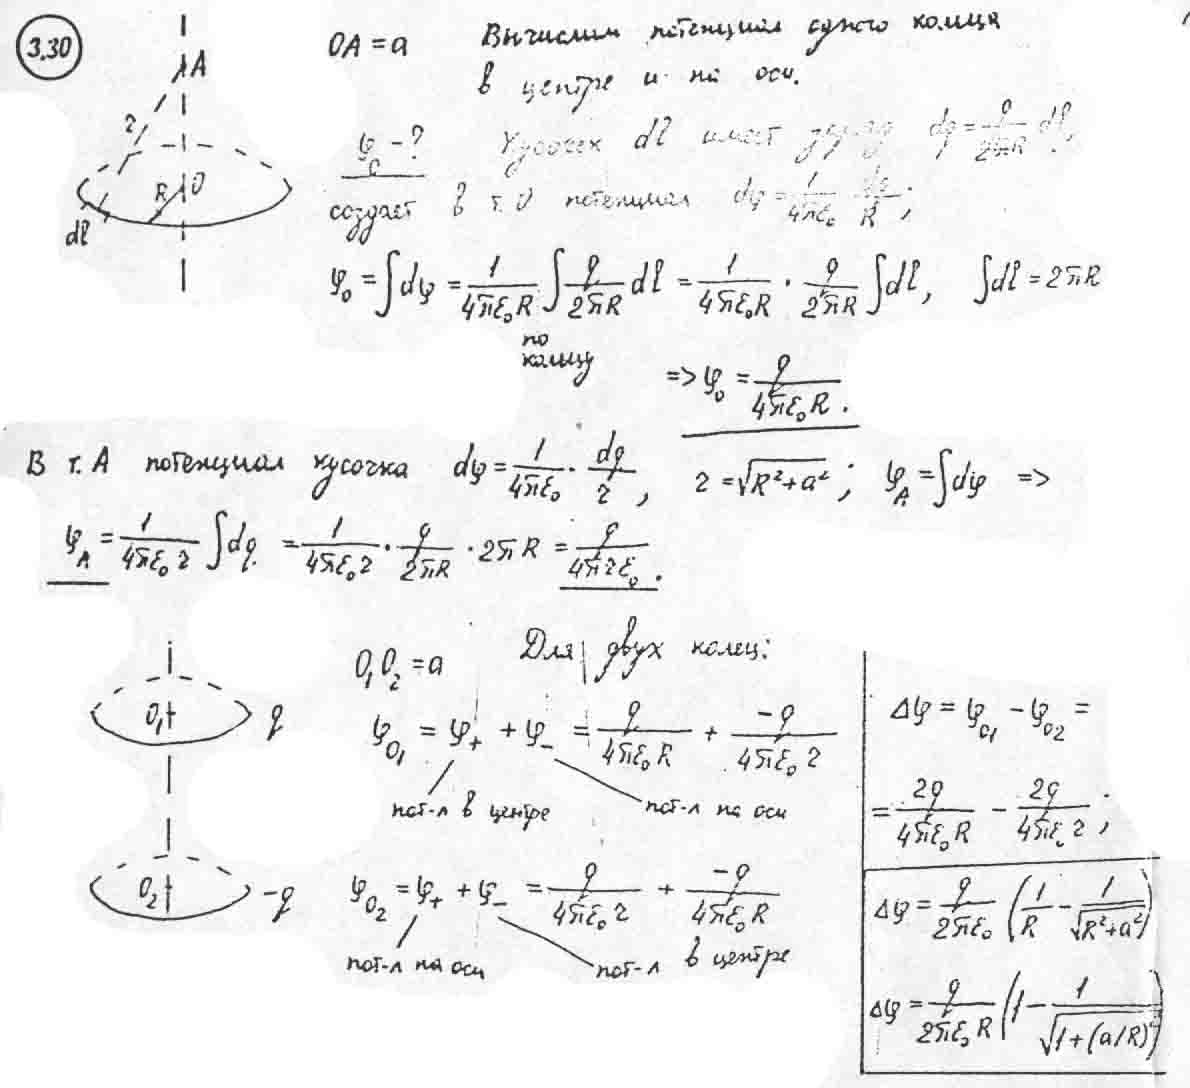 3.30
A
r
R
O
dl
OA = a
Вычислим потенциал одного кольца
в центре и на оси.
φ_c - ?
Кусочек dl имеет заряд dq = q/(2πR) dl,
создает в т. O потенциал dφ = 1/(4πε₀) · dq/R ;
φ₀ = ∫dφ = 1/(4πε₀R) ∫ q/(2πR) dl = 1/(4πε₀R) · q/(2πR) ∫dl, ∫dl = 2πR
по
кольцу
=> φ₀ = q/(4πε₀R) .
В т. A потенциал кусочка dφ = 1/(4πε₀) · dq/r , r = √(R²+a²) ; φ_A = ∫dφ =>
φ_A = 1/(4πε₀r) ∫dq = 1/(4πε₀r) · q/(2πR) · 2πR = q/(4πrε₀) .
O₁
q
O₂
-q
O₁O₂ = a
Для двух колец:
φ_O₁ = φ₊ + φ₋ = q/(4πε₀R) + -q/(4πε₀r)
пот-л в центре
пот-л на оси
φ_O₂ = φ₊ + φ₋ = q/(4πε₀r) + -q/(4πε₀R)
пот-л на оси
пот-л в центре
Δφ = φ_O₁ - φ_O₂ =
= 2q/(4πε₀R) - 2q/(4πε₀r) ;
Δφ = q/(2πε₀) (1/R - 1/√(R²+a²))
Δφ = q/(2πε₀R) (1 - 1/√(1+(a/R)²))